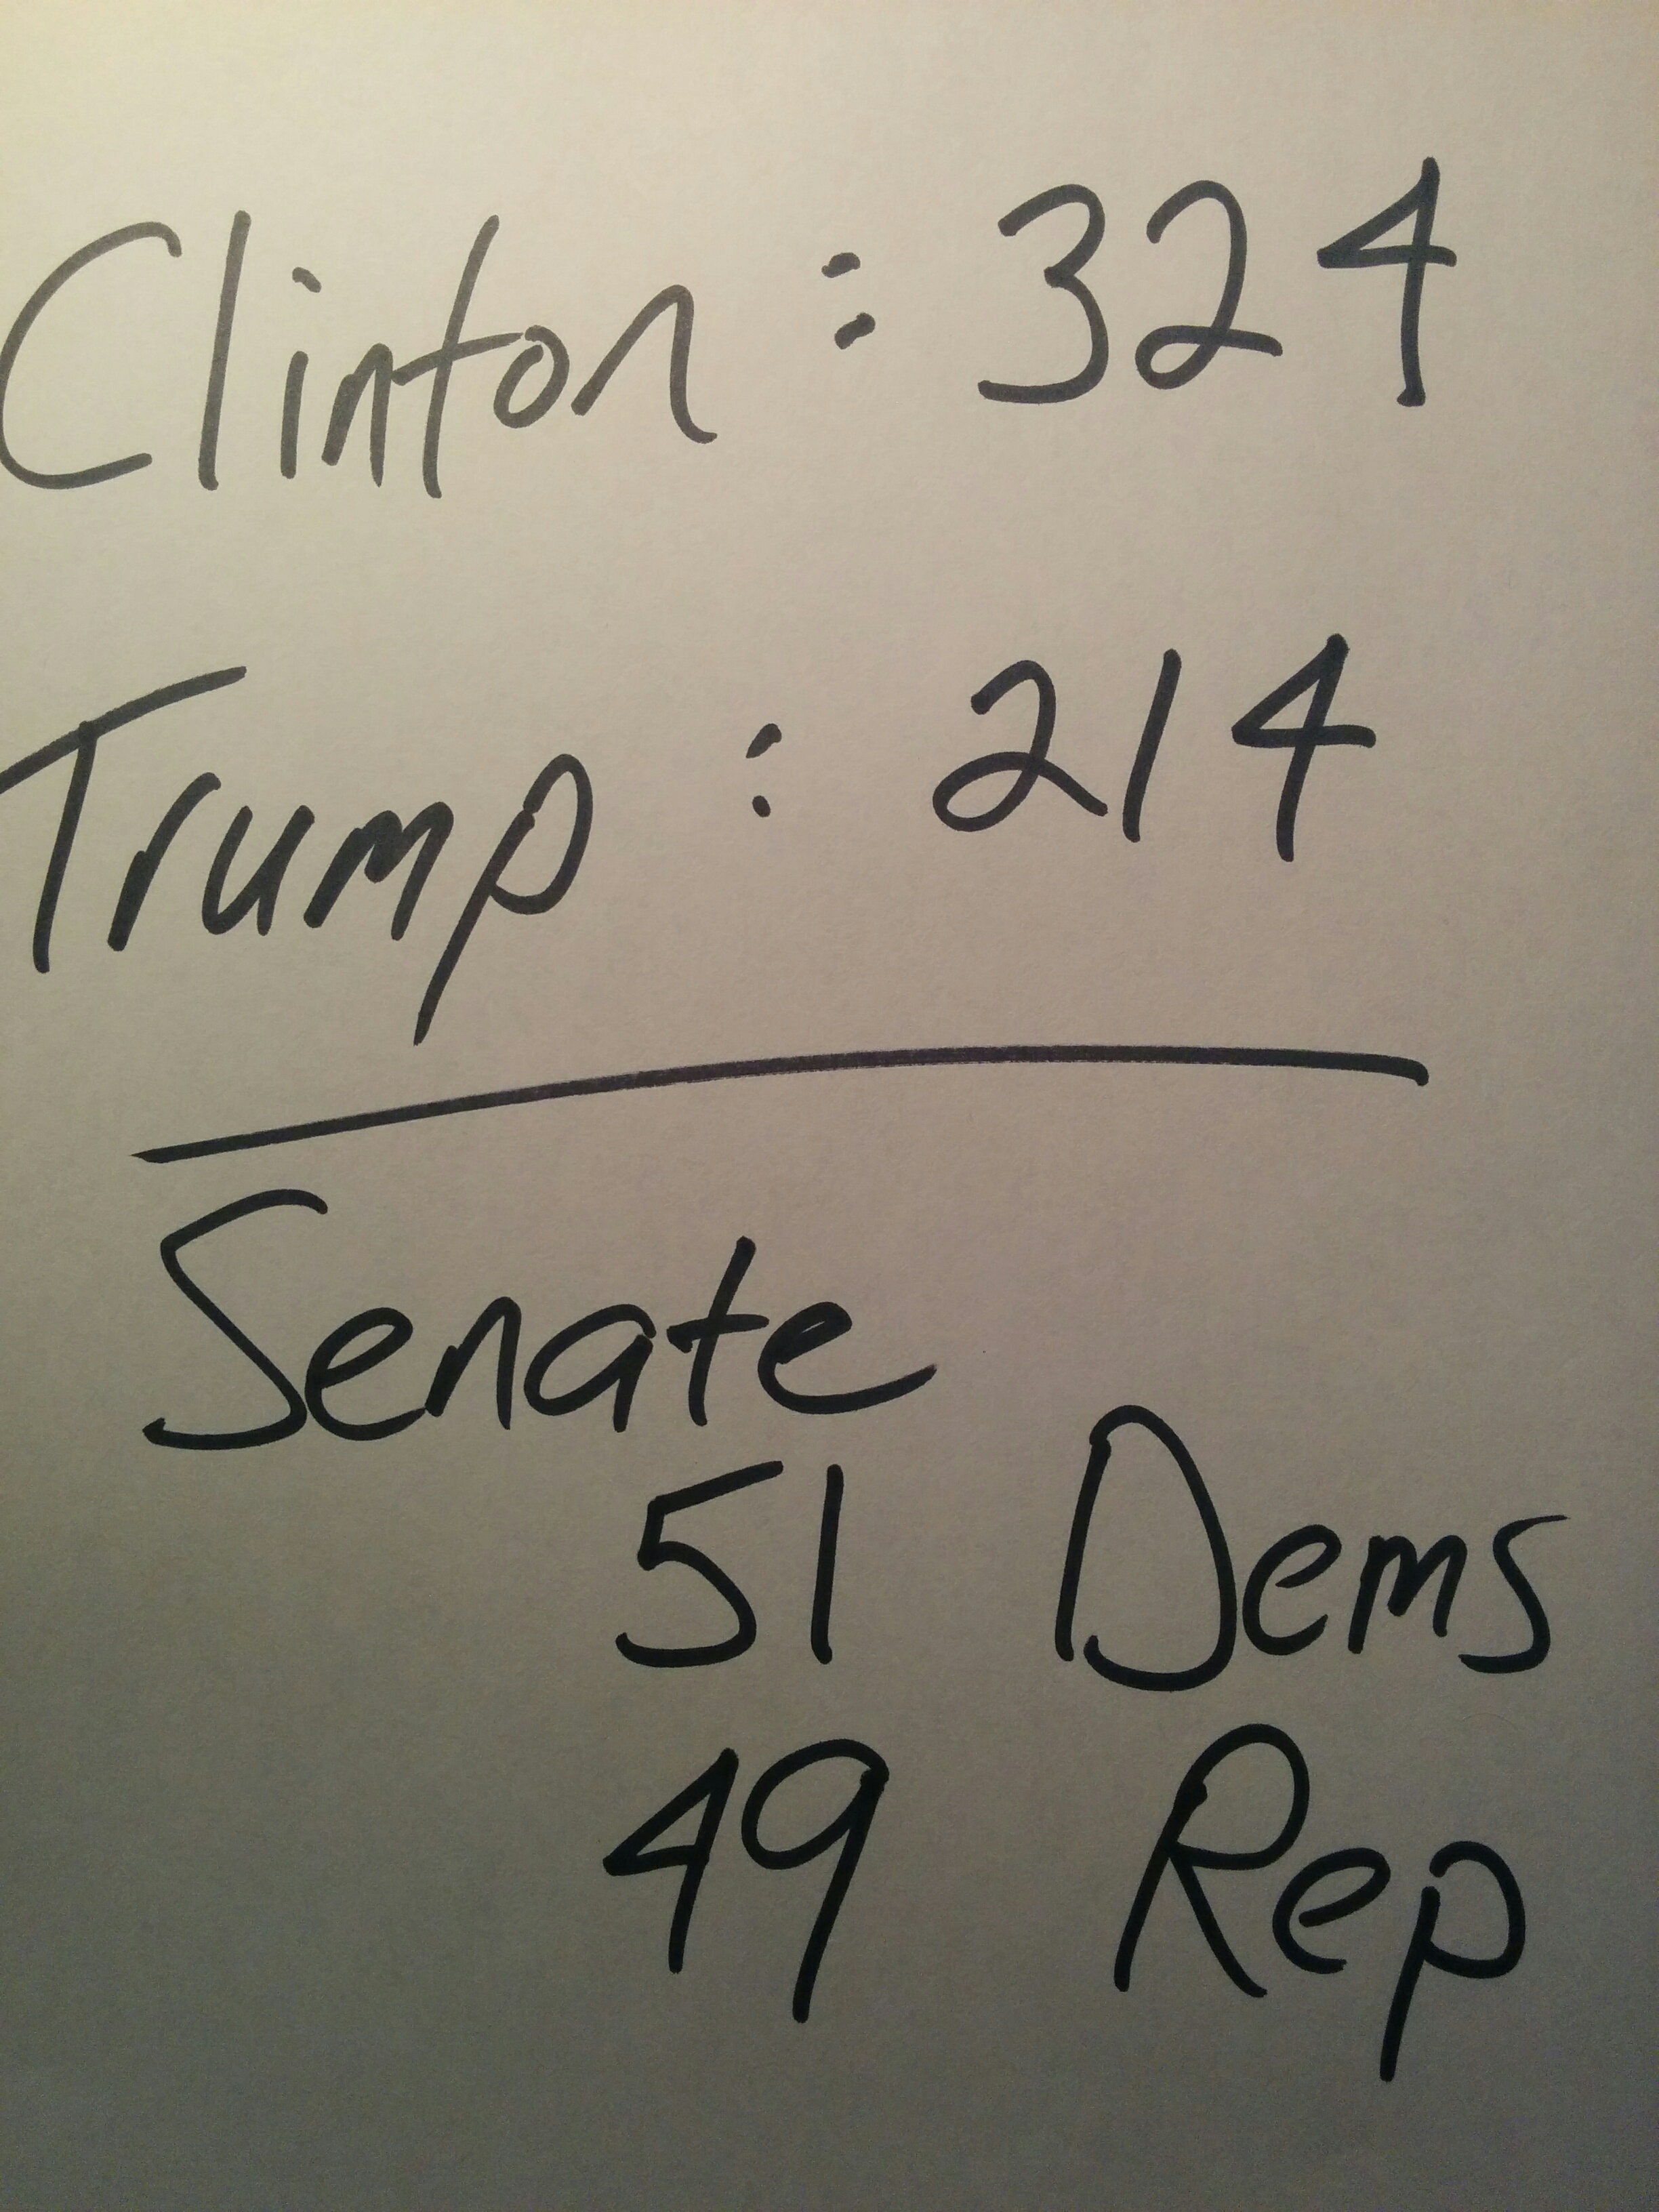 Clinton : 324
Trump : 214
Senate
51 Dems
49 Rep